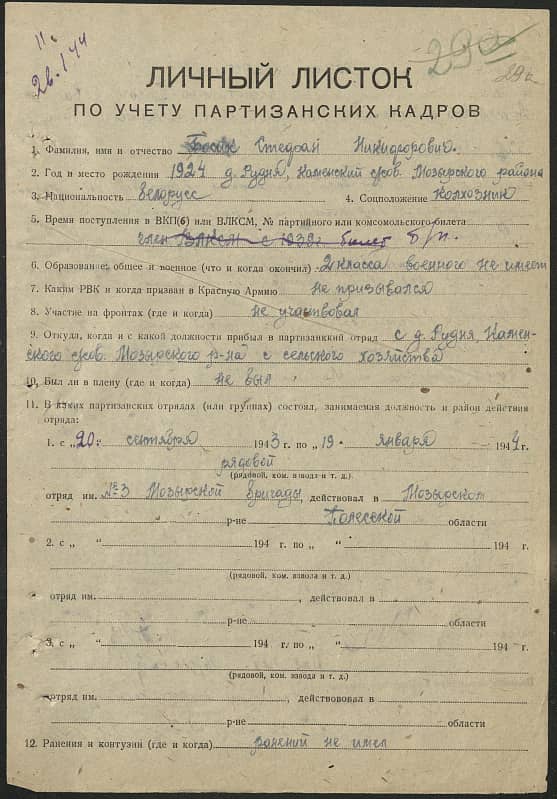 26.1 44
290
29к
ЛИЧНЫЙ ЛИСТОК
ПО УЧЕТУ ПАРТИЗАНСКИХ КАДРОВ
1. Фамилия, имя и отчество Стефан Никифорович.
2. Год и место рождения 1924 д. Рудня, Каменский с/сов. Мозырского района
3. Национальность белорусс 4. Соцположение колхозник
5. Время поступления в ВКП(б) или ВЛКСМ, № партийного или комсомольского билета
член ВЛКСМ с 1939г билет б/п.
6. Образование: общее и военное (что и когда окончил) 2 класса военного не имеет
7. Каким РВК и когда призван в Красную Армию не призывался
8. Участие на фронтах (где и когда) не участвовал
9. Откуда, когда и с какой должности прибыл в партизанский отряд с д. Рудня, Камен-
ского с/сов. Мозырского р-на с сельского хозяйства
10. Был ли в плену (где и когда) не был
11. В каких партизанских отрядах (или группах) состоял, занимаемая должность и район действия
отряда:
1. с „20„ сентября 1943 г. по „19„ января 1944 г.
рядовой
(рядовой, ком. взвода и т. д.)
отряд им. №3 Мозырской бригады, действовал в Мозырском
р-не Полесской области
2. с „ “ 194 г. по „ “ 194 г.
(рядовой, ком. взвода и т. д.)
отряд им. , действовал в
р-не области
3. с „ “ 194 г. по „ “ 194 г.
(рядовой, ком. взвода и т. д.)
отряд им. , действовал в
р-не области
12. Ранения и контузии (где и когда) ранений не имел